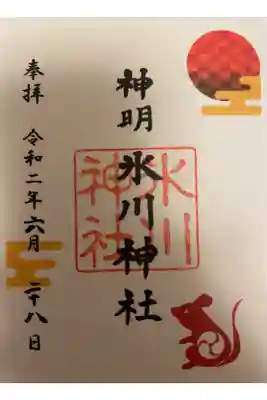 神明氷川神社
氷川神社
奉拝 令和二年六月二十八日